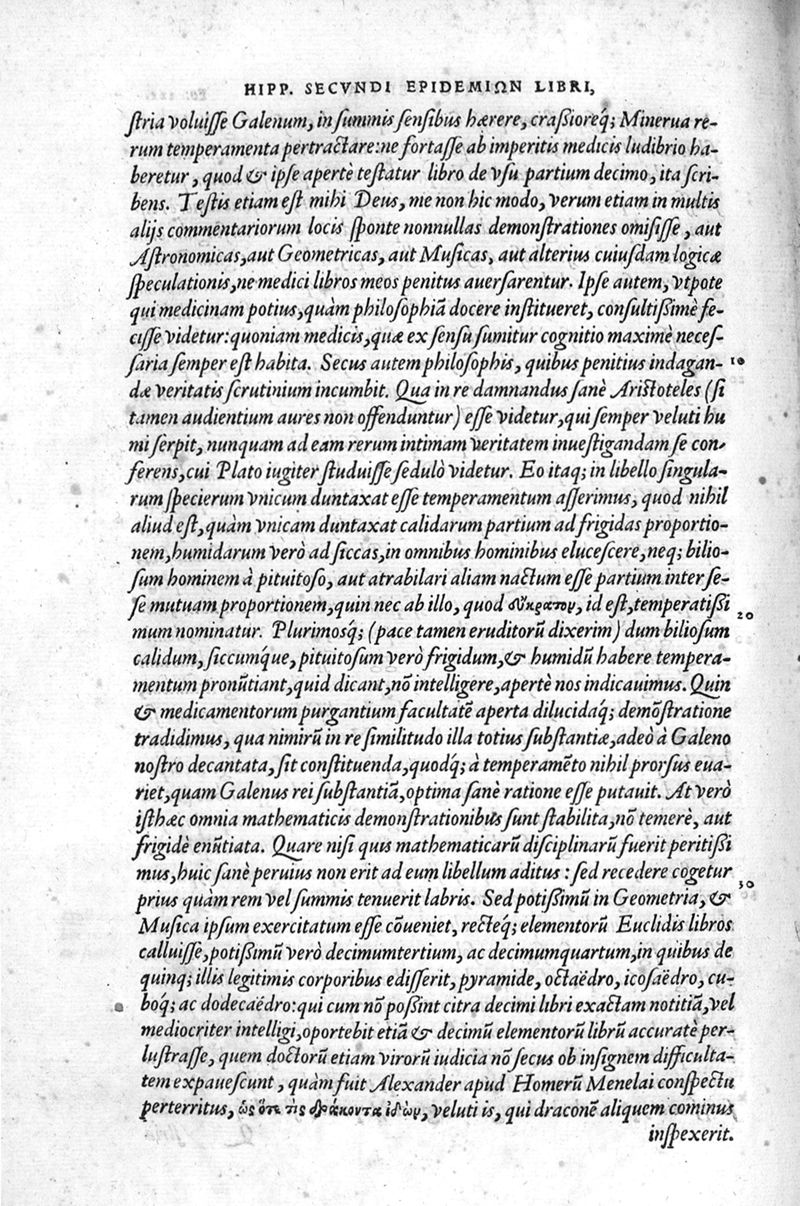 HIPP. SECVNDI EPIDEMIΩN LIBRI,
ſtria voluiſſe Galenum, in ſummis ſenſibus hærere, craßioreq́; Minerua re-
rum temperamenta pertractare: ne fortaſſe ab imperitis medicis ludibrio ha-
beretur, quod & ipſe apertè teſtatur libro de vſu partium decimo, ita ſcri-
bens. Teſtis etiam eſt mihi Deus, me non hic modo, verum etiam in multis
alijs commentariorum locis ſponte nonnullas demonſtrationes omiſiſſe, aut
Aſtronomicas, aut Geometricas, aut Muſicas, aut alterius cuiuſdam logicæ
ſpeculationis, ne medici libros meos penitus auerſarentur. Ipſe autem, vtpote
qui medicinam potius, quàm philoſophiã docere inſtitueret, conſultißimè fe-
ciſſe videtur: quoniam medicis, quæ ex ſenſu ſumitur cognitio maximè neceſ-
ſaria ſemper eſt habita. Secus autem philoſophis, quibus penitius indagan- 10
dæ veritatis ſcrutinium incumbit. Qua in re damnandus ſanè Ariſtoteles (ſi
tamen audientium aures non offenduntur) eſſe videtur, qui ſemper veluti hu
mi ſerpit, nunquam ad eam rerum intimam veritatem inueſtigandam ſe con-
ferens, cui Plato iugiter ſtuduiſſe ſedulò videtur. Eo itaq; in libello ſingula-
rum ſpecierum vnicum duntaxat eſſe temperamentum aſſerimus, quod nihil
aliud eſt, quàm vnicam duntaxat calidarum partium ad frigidas proportio-
nem, humidarum verò ad ſiccas, in omnibus hominibus eluceſcere, neq; bilio-
ſum hominem à pituitoſo, aut atrabilari aliam nactum eſſe partium inter ſe-
ſe mutuam proportionem, quin nec ab illo, quod εὔκρατον, id eſt, temperatißi
mum nominatur. Plurimosq́; (pace tamen eruditorũ dixerim) dum bilioſum 20
calidum, ſiccumq́ue, pituitoſum verò frigidum, & humidũ habere tempera-
mentum pronũtiant, quid dicant, nõ intelligere, apertè nos indicauimus. Quin
& medicamentorum purgantium facultatẽ aperta dilucidaq́; demõſtratione
tradidimus, qua nimirũ in re ſimilitudo illa totius ſubſtantiæ, adeò à Galeno
noſtro decantata, ſit conſtituenda, quodq́; à temperamẽto nihil prorſus eua-
riet, quam Galenus rei ſubſtantiã, optima ſanè ratione eſſe putauit. At verò
iſthæc omnia mathematicis demonſtrationibus ſunt ſtabilita, nõ temerè, aut
frigidè enũtiata. Quare niſi quis mathematicarũ diſciplinarũ fuerit peritißi
mus, huic ſanè peruius non erit ad eum libellum aditus: ſed recedere cogetur
prius quàm rem vel ſummis tenuerit labris. Sed potißimũ in Geometria, & 30
Muſica ipſum exercitatum eſſe cõueniet, recteq́; elementorũ Euclidis libros
calluiſſe, potißimũ verò decimumtertium, ac decimumquartum, in quibus de
quinq; illis legitimis corporibus ediſſerit, pyramide, octaëdro, icoſaëdro, cu-
boq́; ac dodecaëdro: qui cum nõ poßint citra decimi libri exactam notitiã, vel
mediocriter intelligi, oportebit etiã & decimũ elementorũ librũ accuratè per-
luſtraſſe, quem doctorũ etiam virorũ iudicia nõ ſecus ob inſignem difficulta-
tem expaueſcunt, quàm fuit Alexander apud Homerũ Menelai conſpectu
perterritus, ὡς ὅτε τὶς δράκοντα ἰδὼν, veluti is, qui draconẽ aliquem cominus
inſpexerit.